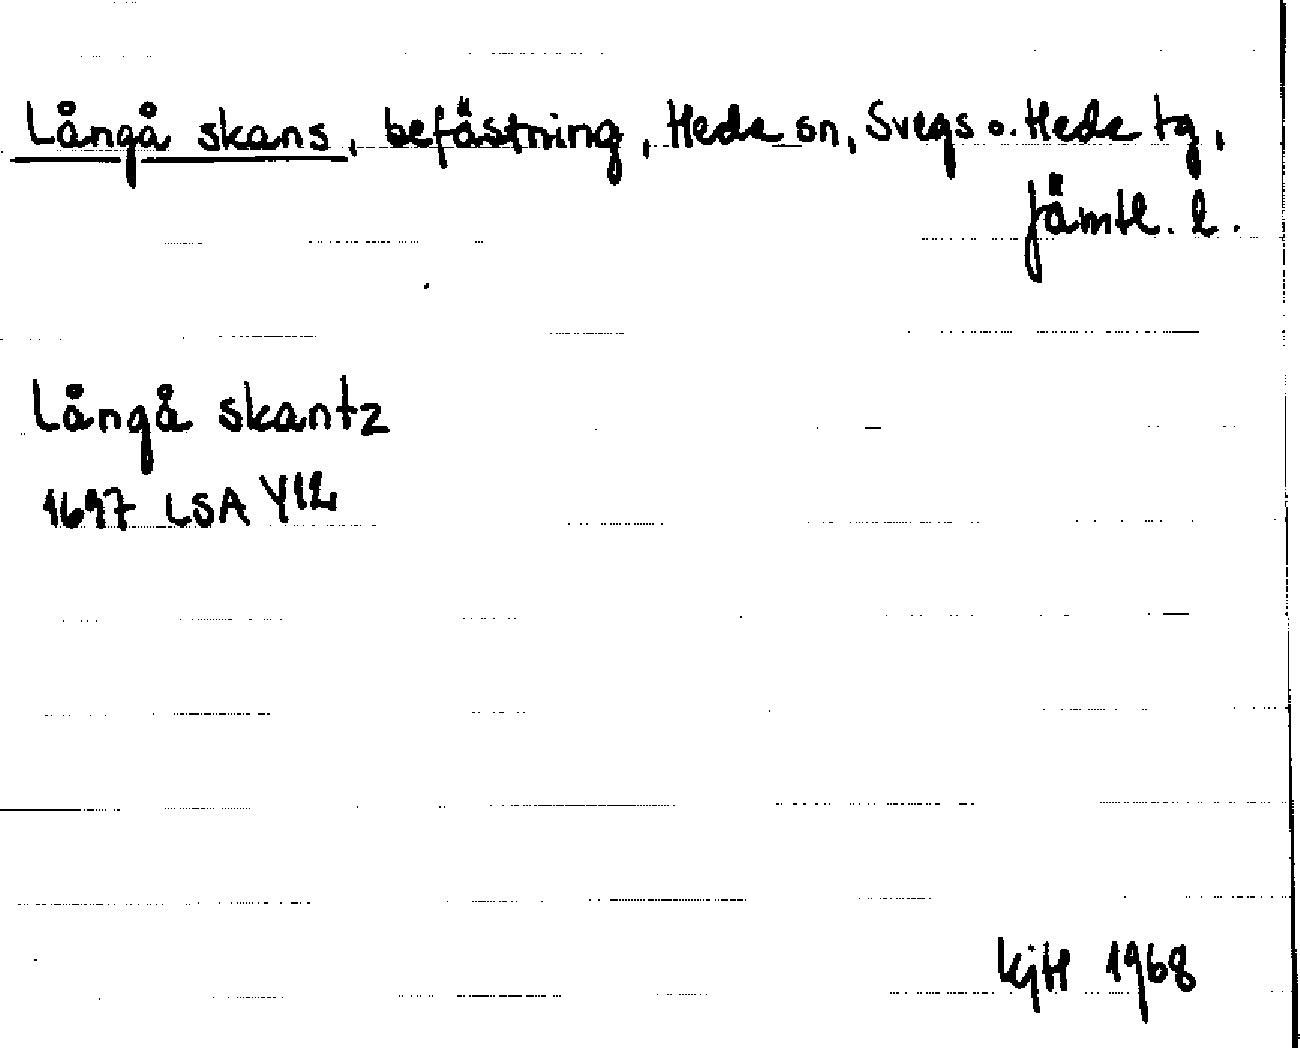 Långå skans, befästning, Hede sn, Svegs o. Hede tg,
Jämtl. l.
Långå skantz
1697 LSA Y12
KjH 1968